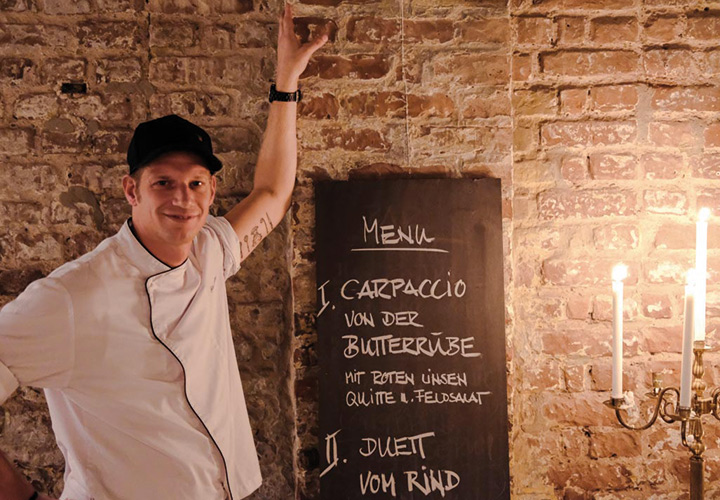 MENU
I. CARPACCIO
VON DER
BUTTERRÜBE
MIT ROTEN LINSEN
QUITTE U. FELDSALAT
II. DUETT
VOM RIND